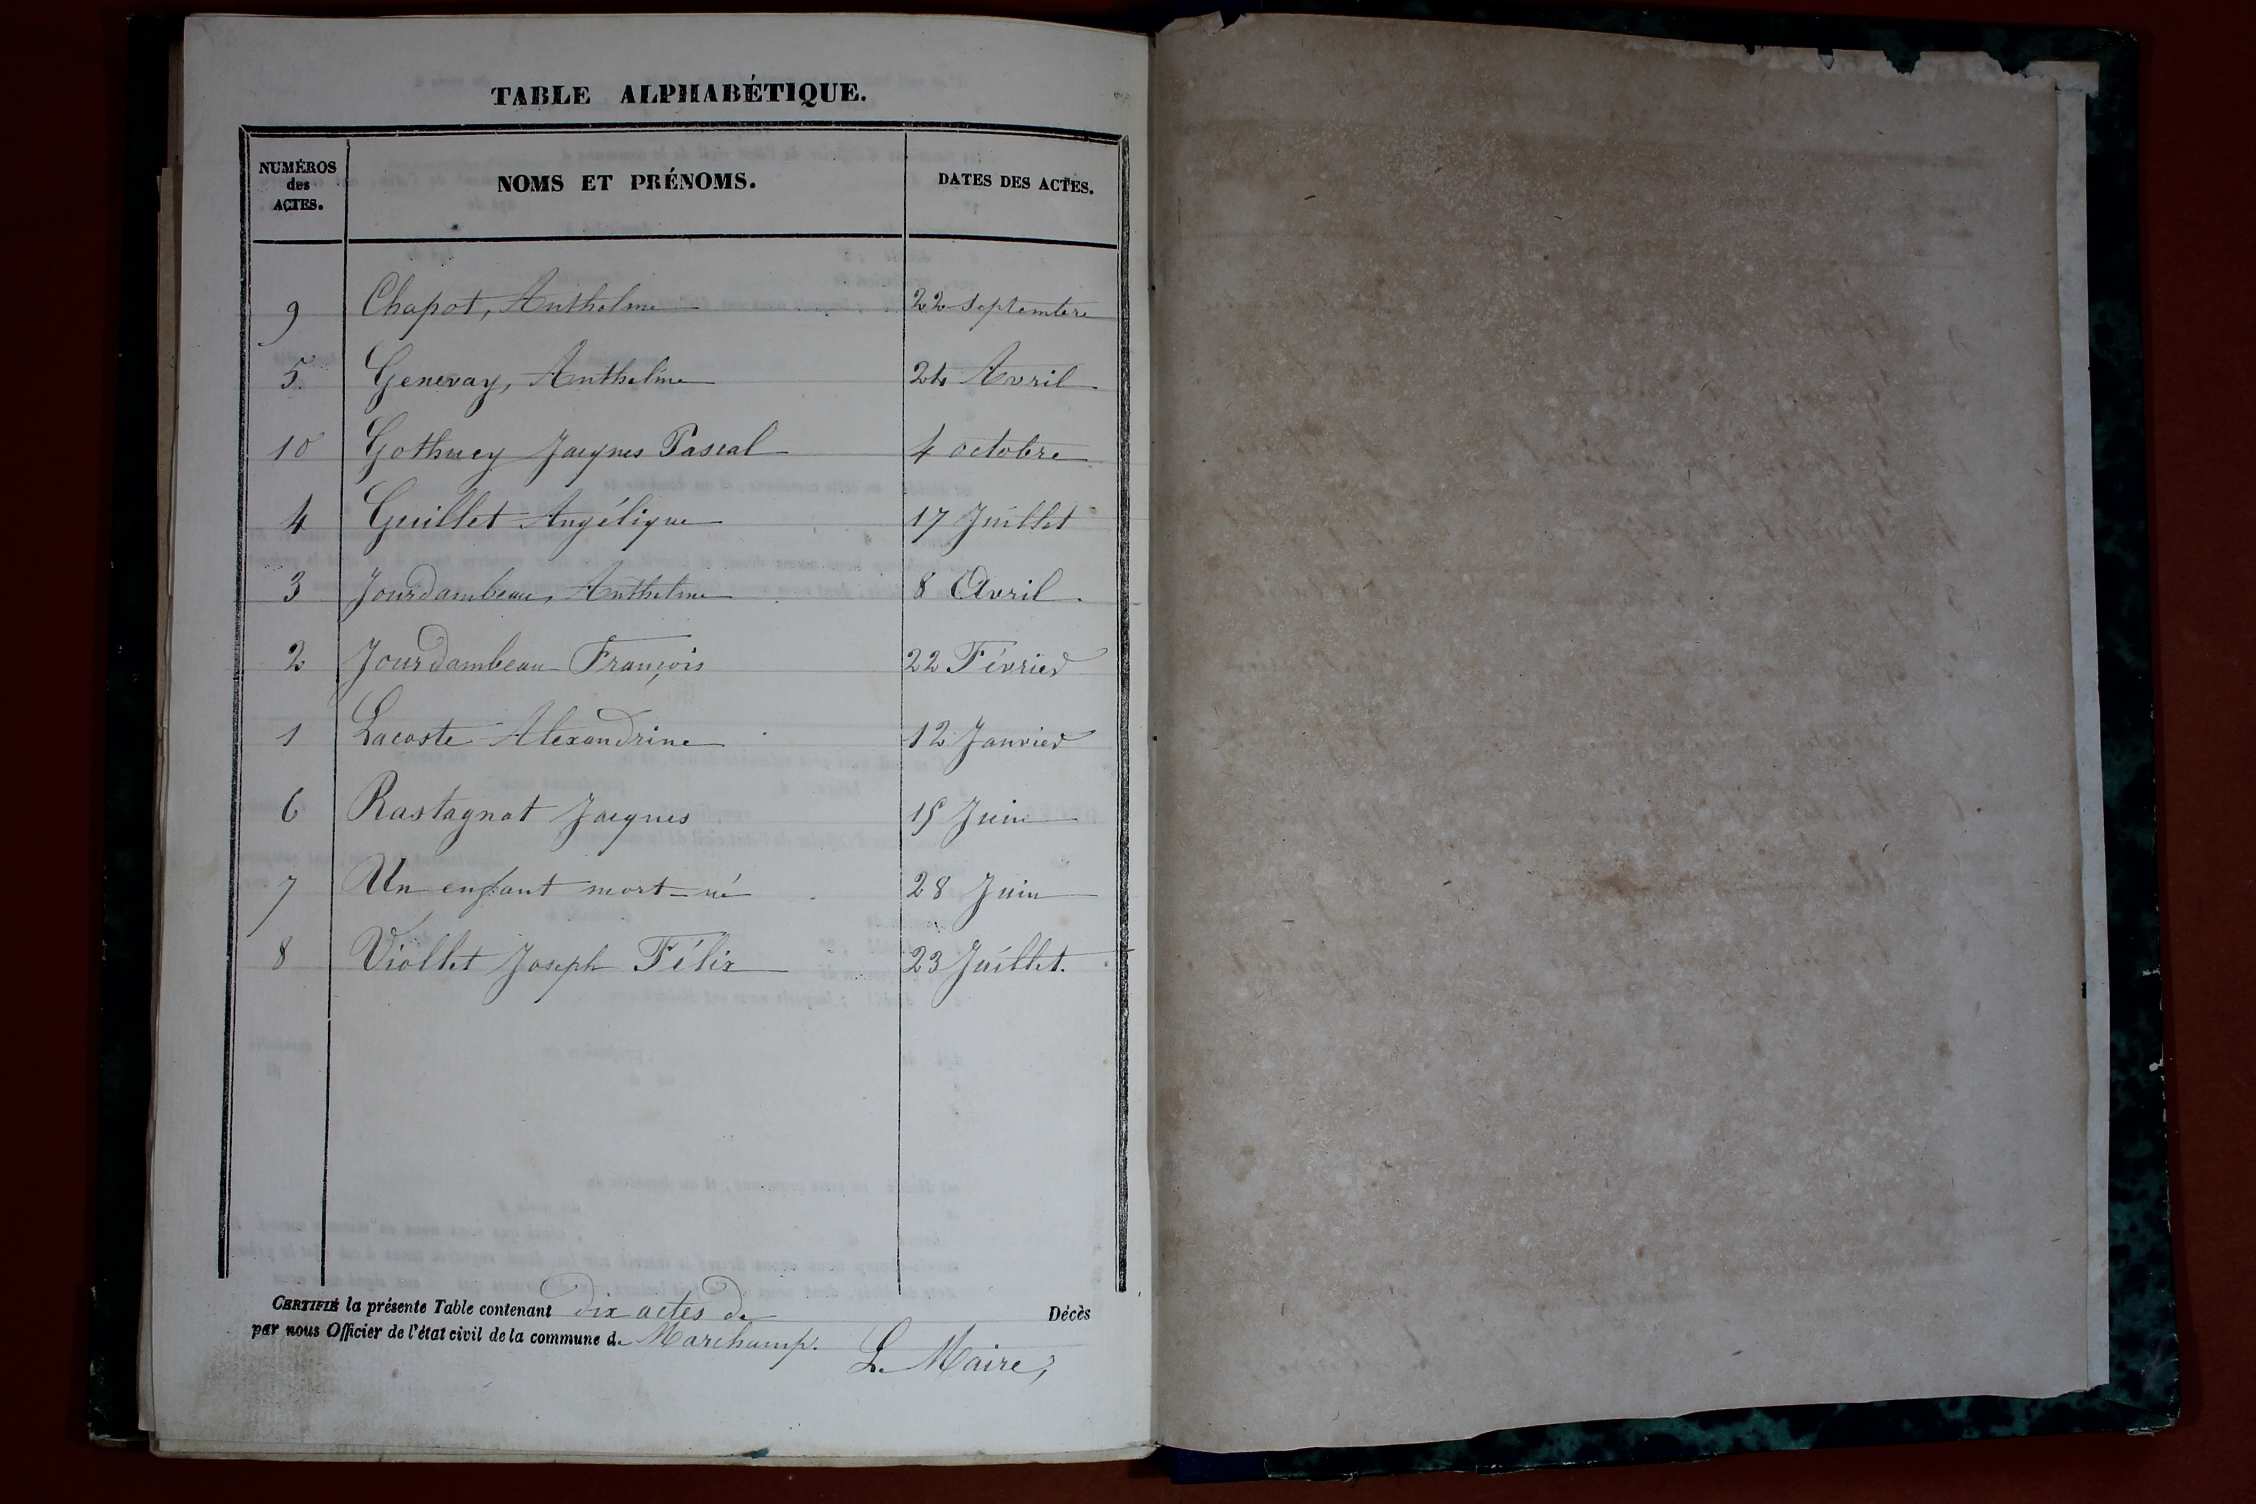 TABLE ALPHABÉTIQUE.
NUMÉROS des ACTES. NOMS ET PRÉNOMS. DATES DES ACTES.
9 Chapot, Anthelme 22 Septembre
5. Genevay, Anthelme 24 Avril
10 Gothuey Jacques Pascal 4 octobre
4 Guillet Angélique 17 Juillet
3 Jourdambeau, Anthelme 8 Avril.
2 Jourdambeau François 22 Février
1 Lacoste Alexandrine 12 Janvier
6 Rastagnat Jacques 15 Juin
7 Un enfant mort-né 28 Juin
8 Viollet Joseph Félix 23 Juillet.
CERTIFIÉ la présente Table contenant dix actes de Décès
par nous Officier de l'état civil de la commune de Marchamp.
Le Maire,